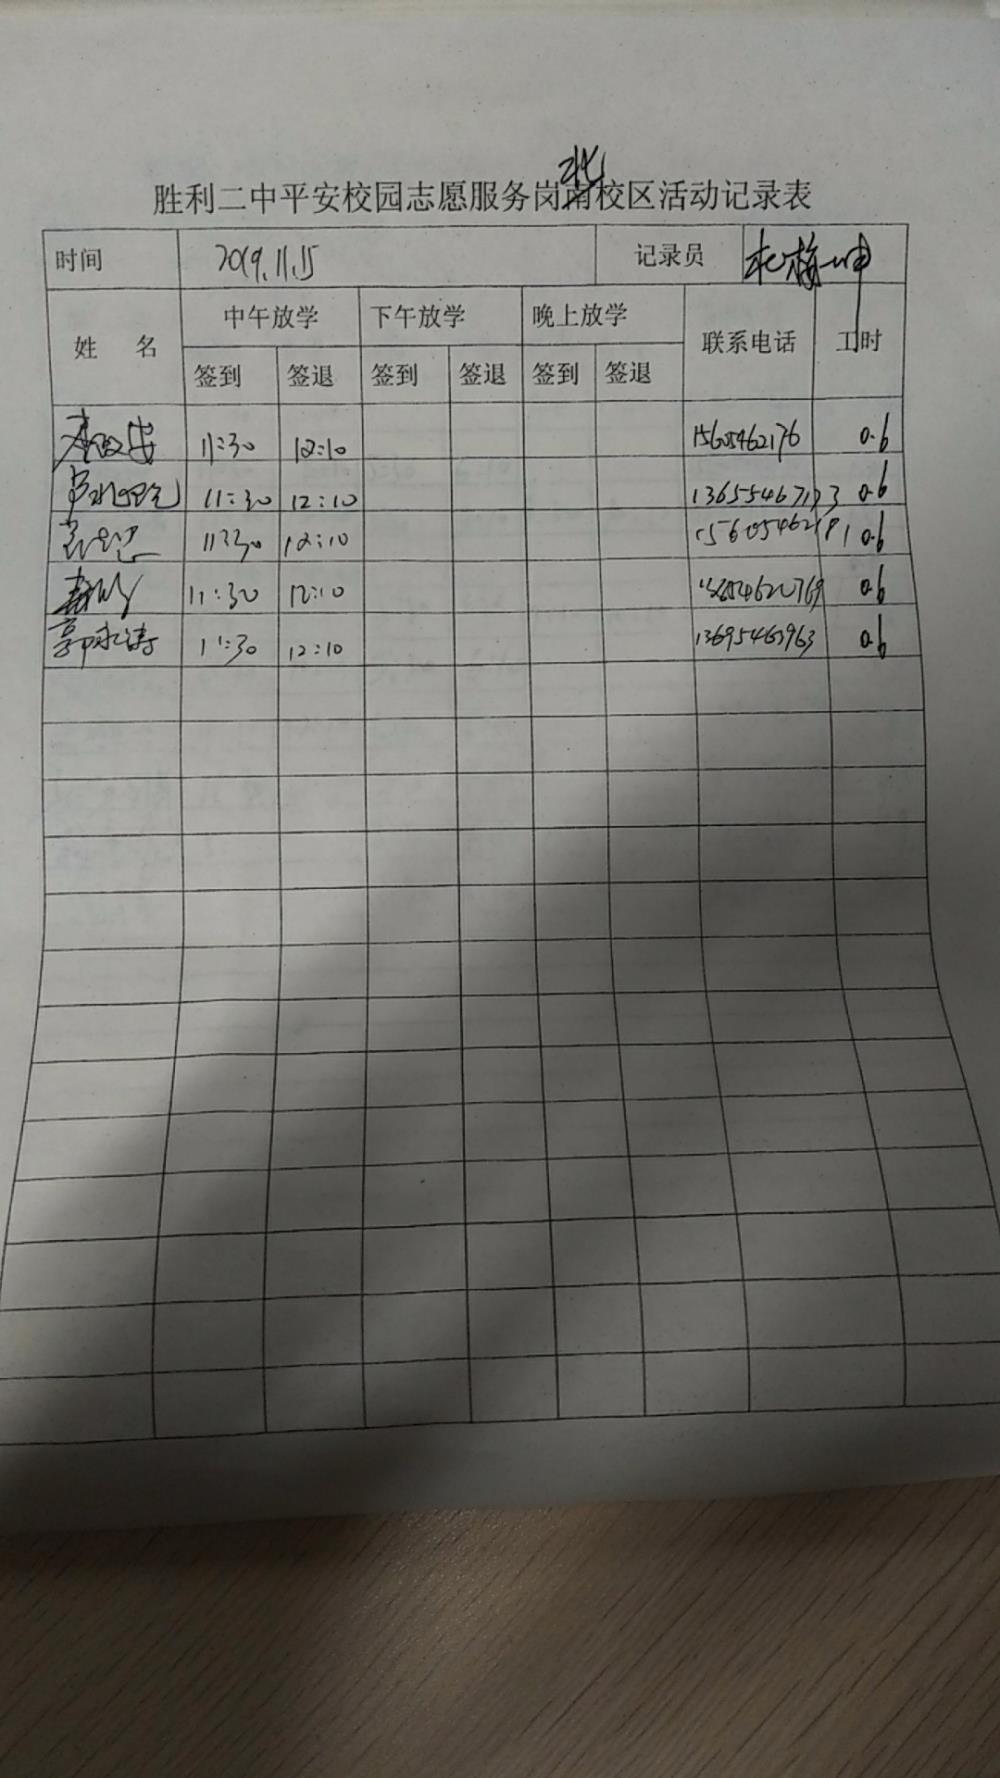 胜利二中平安校园志愿服务岗北校区活动记录表
时间 2019.11.15 记录员
姓 名 中午放学 下午放学 晚上放学 联系电话 工时
签到 签退 签到 签退 签到 签退
11:30 12:10 15605462176 0.6
11:30 12:10 0.6
11:30 12:10 0.6
11:30 12:10 0.6
郭永涛 11:30 12:10 13695463963 0.6